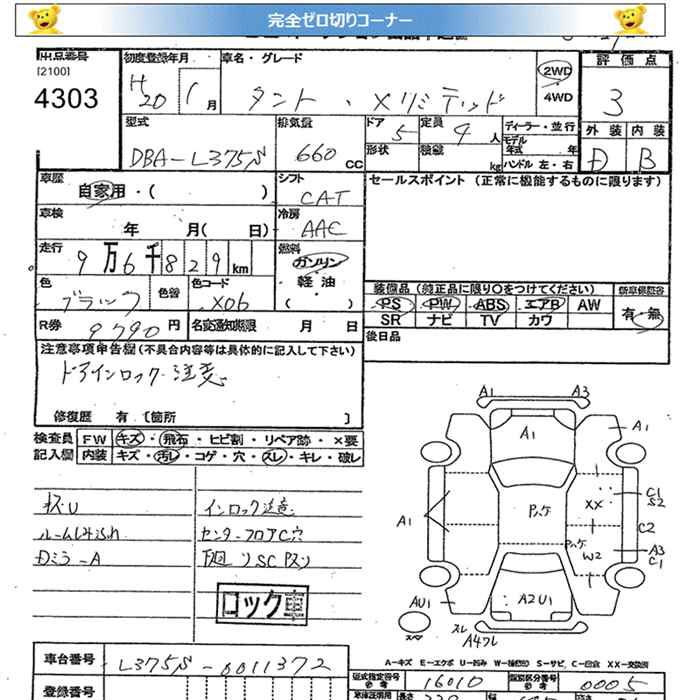 完全ゼロ切りコーナー
出品番号
[2100]
4303
初度登録年月
H20 1月
車名・グレード
タント ・ Xリミテッド
2WD
4WD
評価点
3
外装 内装
D B
型式
DBA-L375S
排気量
660 CC
ドア 5
形状
定員 4 人
積載 kg
ディーラー・並行
モデル年式 年
ハンドル 左・右
車歴
自家用・( )
シフト
CAT
セールスポイント(正常に機能するものに限ります)
車検
年 月( 日)
冷房
AAC
走行
9万6千829km
燃料
ガソリン
軽油
( )
色
ブラック
色替
色コード
X06
装備品(純正品に限り○をつけてください)
PS PW ABS エアB AW
SR ナビ TV カワ
新車保証書
有・無
R券
9790円
名変通知期限 月 日
後日品
注意事項申告欄(不具合内容等は具体的に記入して下さい)
ドアインロック注意
修復歴 有〔箇所 〕
検査員記入欄
FW キズ・飛石・ヒビ割・リペア跡・×要
内装 キズ・汚レ・コゲ・穴・スレ・キレ・破レ
キズU
ルームしみ汚れ
Dミラ-A
インロック注意
センターフロアC穴
下廻りSCワスリ
ロック
A1 A3
A1 A1
A1
P,ハゲ
XX
C1
S2
C2
P,ハゲ
W2
A3
C1
AU1
A2U1
スレ
A4ワレ
A-キズ E-エクボ U-凹み W-補修跡 S-サビ C-腐食 XX-交換済
車台番号
L375S-0011372
型式指定番号
参考
16010
類別区分番号
参考
0005
登録番号
長さ
幅
高さ